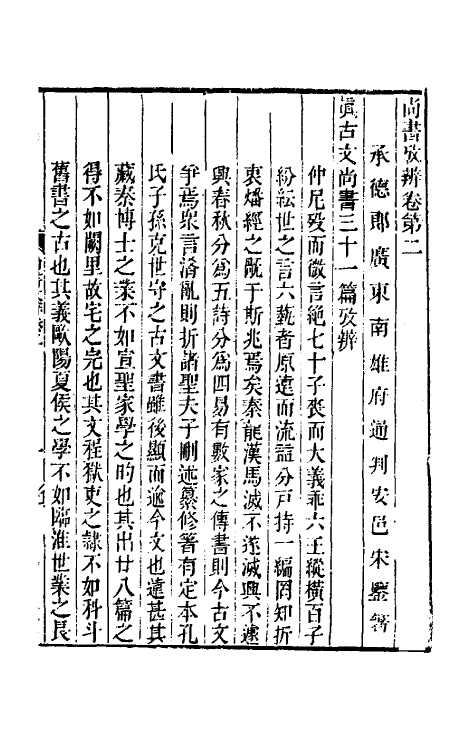 尚書攷辨卷第二
承德郎廣東南雄府通判安邑宋鑒箸
眞古文尚書三十一篇攷辨
仲尼歿而微言絕七十子喪而大義乖六王縱橫百子
紛紜世之言六藝者原遠而流益分戸持一編罔知折
衷燔經之厄于斯兆焉矣秦龍漢馬滅不遂滅興不遽
興春秋分爲五詩分爲四易有數家之傳書則今古文
爭焉衆言淆亂則折諸聖夫子刪述纂修箸有定本孔
氏子孫克世守之古文書雖後顯而逾今文也遠甚其
藏秦博士之業不如宣聖家學之的也其出廿八篇之
得不如闕里故宅之完也其文程獄吏之隷不如科斗
舊書之古也其義歐陽夏侯之學不如臨淮世業之良